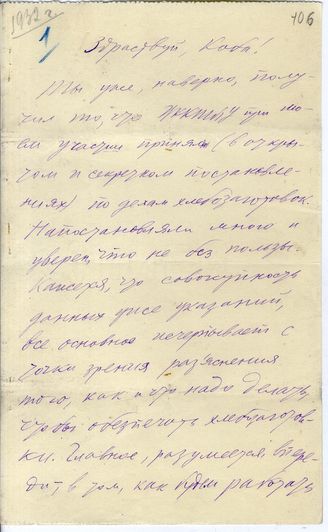 1932 г
106
1
Здравствуй, Коба!
Ты уже, наверно, полу-
чил то, что ЦККП(б)У при мо-
ем участии приняли (в откры-
том и секретном постановле-
ниях) по делам хлебозаготовок.
Напостановляли много и
уверен, что не без пользы.
Кажется, что совокупность
данных уже указаний,
все основное исчерпывает с
точки зрения разяснения
того, как и что надо делать,
чтобы обеспечить хлебозаготов-
ки. Главное, разумеется, впере-
ди, в том, как будем работать